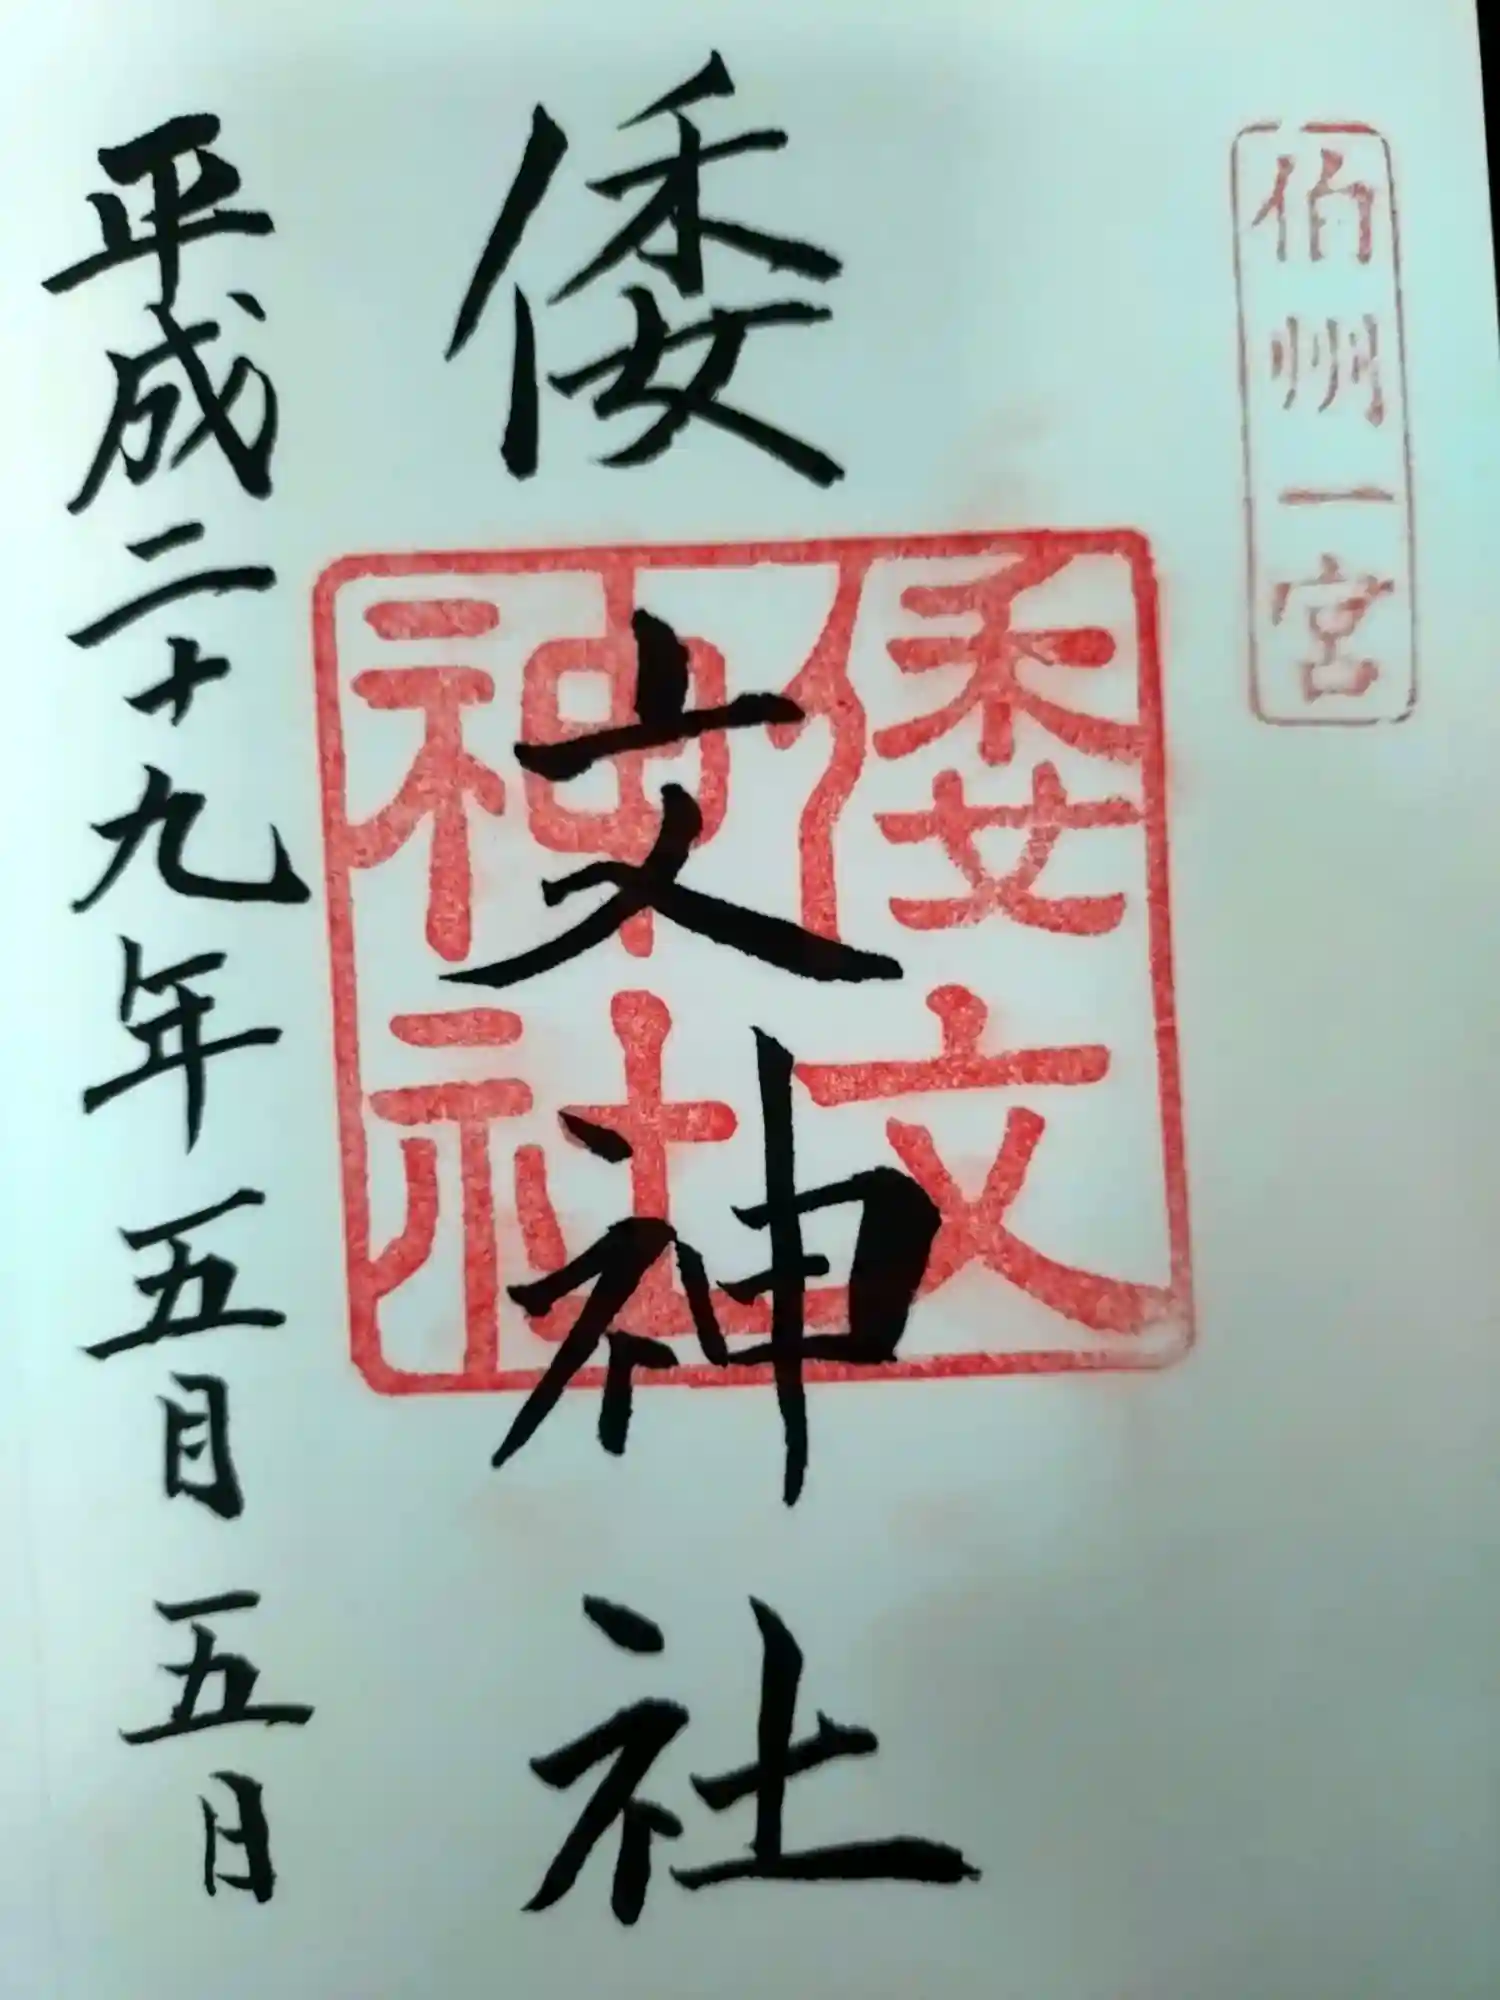 伯州一宮
倭文神社
倭文
神社
平成二十九年五月五日